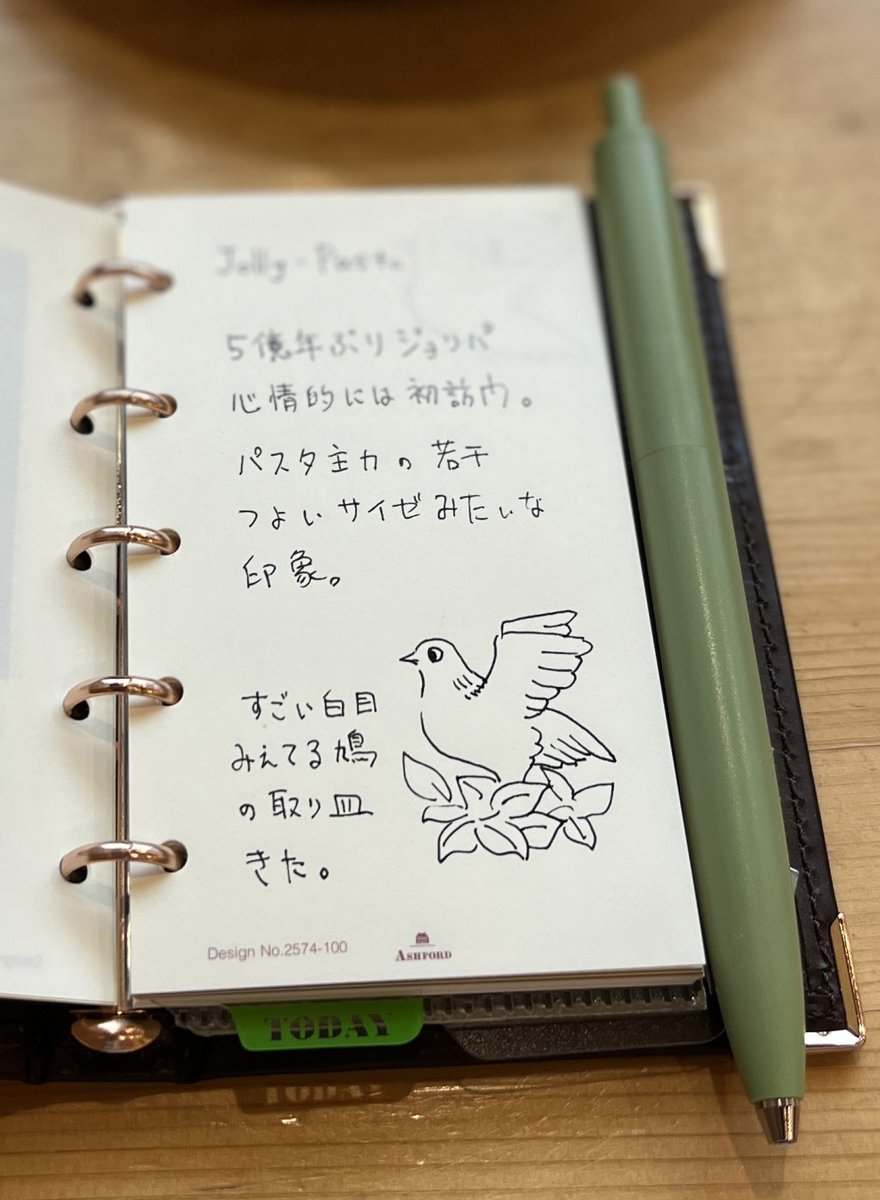 Jolly-Pasta
5億年ぶりジョリパ
心情的には初訪内。
パスタ主力の若干
つよいサイゼみたいな
印象。
すごい白目
みえてる鳩
の取り皿
きた。
Design No.2574-100
ASHFORD
TODAY